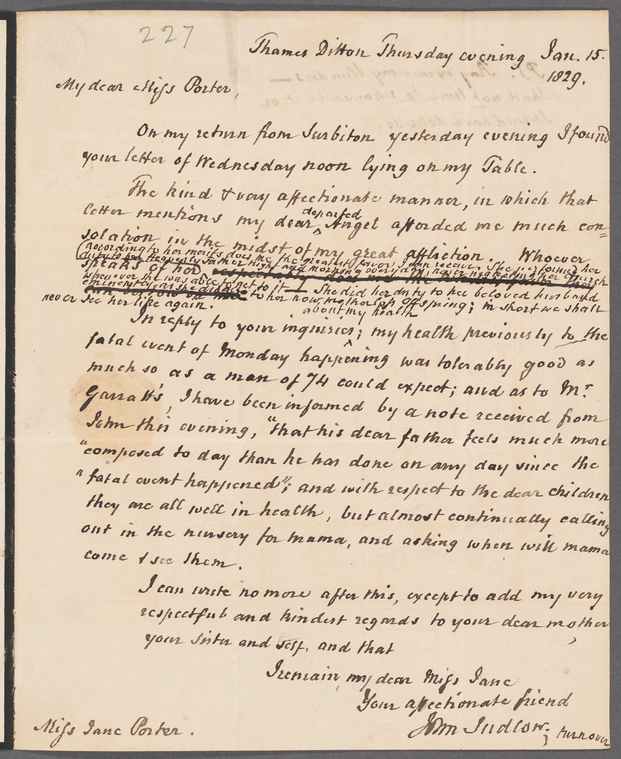 227
Thames Ditton Thursday evening Jan. 15.
1829.
My dear Miss Porter,
On my return from Surbiton yesterday evening I found
your letter of Wednesday noon lying on my Table.
The kind & very affectionate manner, in which that
departed
letter mentions my dear ^ Angel afforded me much con=
solation in the midst of my great affliction. Whoever
(according to her merits does me the greatest favor I can receive. She performed her
duty to her Heavenly Father night and morning every day, never neglected her Church
speaks of her
whenever she was able to get to it
She did her duty to her beloved husband
eminently as she did to her now motherless offspring; in short we shall
never see her like again.
about my health
In reply to your inquiries ^; my health previously to the
fatal event of Monday happening was tolerably good as
much so as a man of 74 could expect; and as to Mr
Garratt's, I have been informed by a note received from
John this evening, "that his dear father feels much more
"composed to day than he has done on any day since the
"fatal event happened"; and with respect to the dear children
they are all well in health, but almost continually calling
out in the nursery for mama, and asking when will mama
come & see them.
I can write no more after this, except to add my very
respectful and kindest regards to your dear mother,
your sister and self, and that
I remain my dear Miss Jane
Your affectionate friend
John Ludlow.
Miss Jane Porter.
turn over